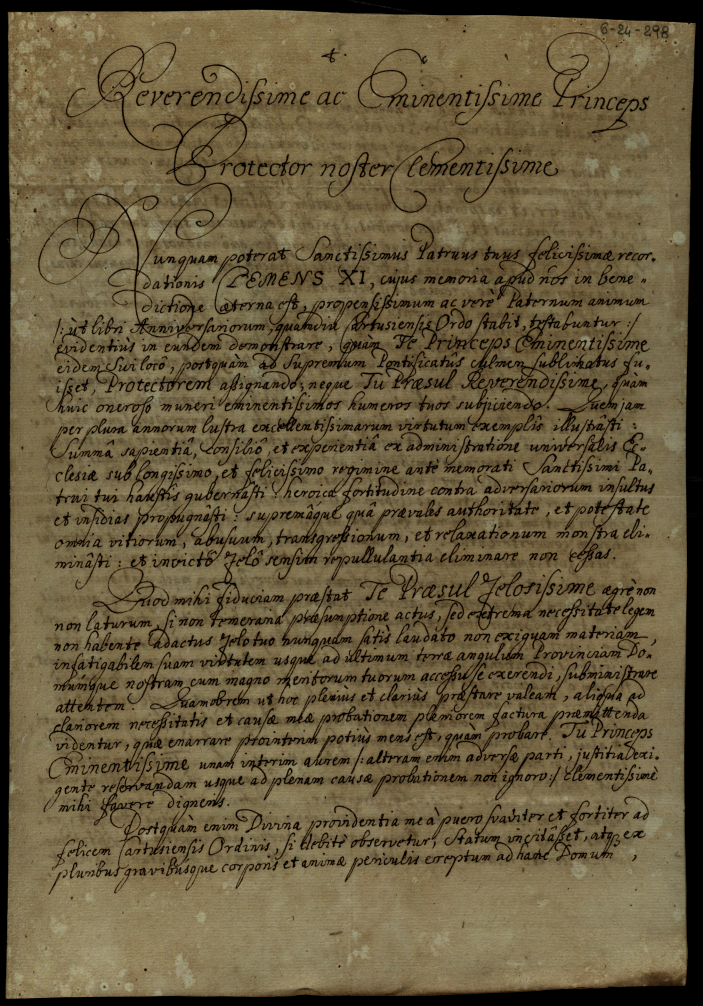 6-24-298
Reverendissime ac Eminentissime Princeps
Protector noster Clementissime
Nunquam poterat Sanctissimus Patruus tuus felicissimæ recor-
dationis CLEMENS XI, cujus memoria apud nos in bene-
dictione æterna est, propensissimum ac verè Paternum animum
/: ut libri Anniversariorum, quamdiu Cartusiensis Ordo stabit, testabuntur :/
evidentiùs in eundem demonstrare, quàm Te Princeps Eminentissime
eidem Sui locô, postquàm ad Supremum Pontificatûs culmen sublimatus fu-
isset, Protectorem assignando; neque Tu Præsul Reverendissime, quàm
huic oneroso muneri eminentissimos humeros tuos subjiciendo. Quem jam
per plura annorum lustra excellentissimarum virtutum exemplis illustrâsti:
Summâ sapientiâ, consiliô, et experientiâ ex administratione universalis Ec-
clesiæ sub longissimo, et felicissimo regimine antè memorati Sanctissimi Pa-
trui tui haustis gubernâsti: heroicâ fortitudine contra adversariorum insultus
et insidias propugnâsti: supremâque quâ prævales authoritate, et potestate
omnia vitiorum, abusuum, transgressionum, et relaxationum monstra eli-
minâsti: et invictô Zelô sensim repullulantia eliminare non cessas.
Quod mihi fiduciam præstat Te Præsul Zelosissime ægrè non
non laturum, si non temeraria præsumptione actus, sed extrema necessitate legem
non habente adactus Zelo tuo nunquam satis laudato non exiguam materiam,
infatigabilem suam virtutem usque ad ultimum terræ angulum Provinciam Do-
mumque nostram cum magno meritorum tuorum accessu se exerendi, subministrare
attentem. Quamobrem ut hoc pleniùs et clariùs præstare valeam, aliqua ad
clariorem necessitatis et causæ meæ probationem pleniorem factura præmittenda
videntur, quæ enarrare prointerim potiùs mens est, quam probare. Tu Princeps
Eminentissime unam interim aurem /: alteram enim adversæ parti, justitiâ exi-
gente reservandam usque ad plenam causæ probationem non ignoro :/ clementissimè
mihi favere digneris.
Postquàm enim Divina providentia me à puero svaviter et fortiter ad
felicem Cartusiensis Ordinis, si debitè observetur, Statum incitâsset, atq; ex
pluribus gravibusque corporis et animæ periculis ereptum ad hanc Domum,